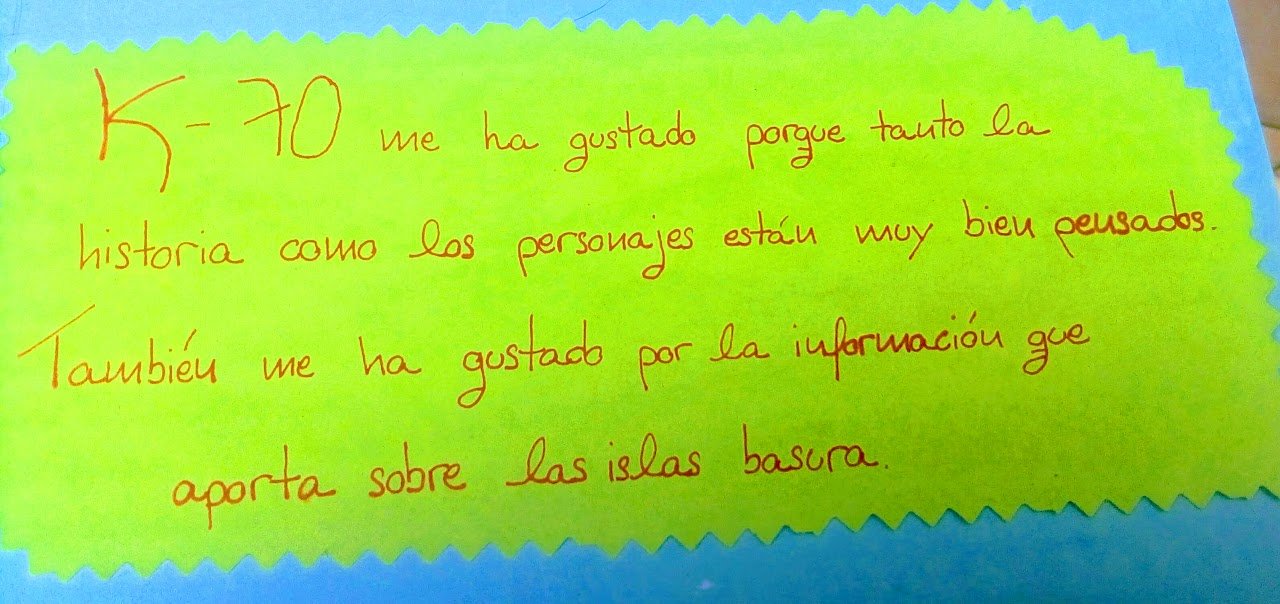 K-70 me ha gustado porque tanto la
historia como los personajes están muy bien pensados.
También me ha gustado por la información que
aporta sobre las islas basura.